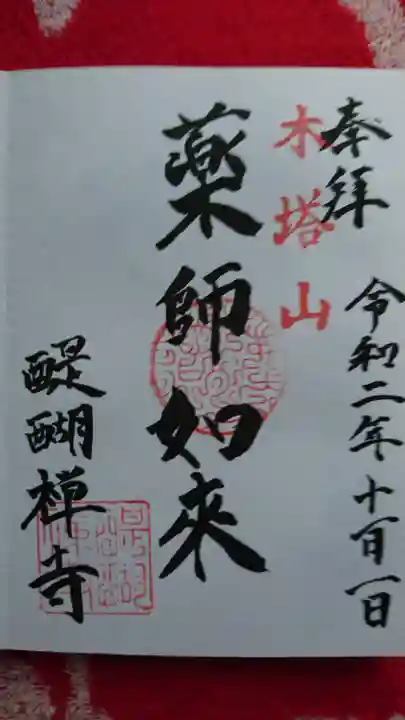 奉拝
令和二年十一月一日
木塔山
薬師如来
醍醐禅寺